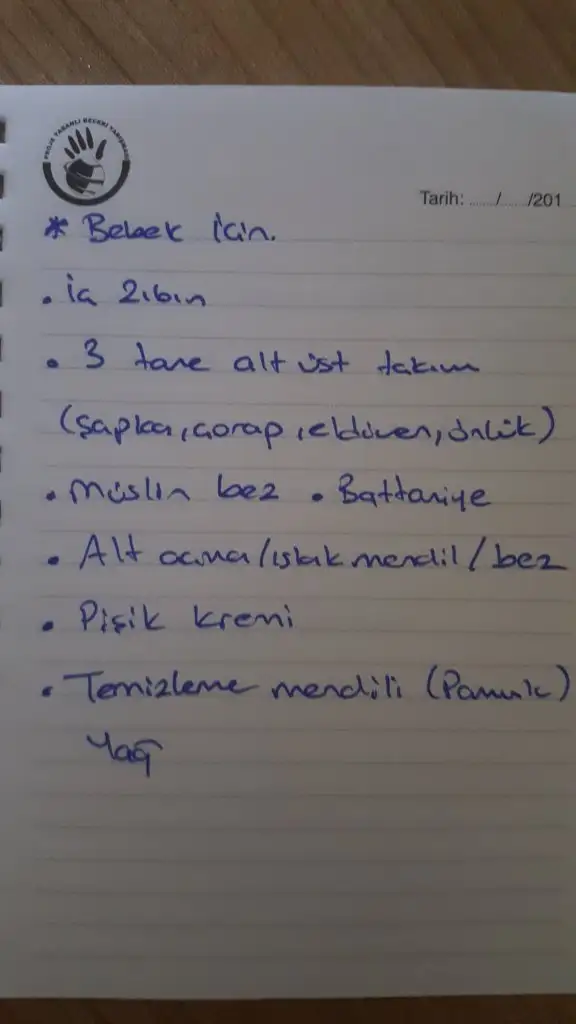 PROJE TABANLI BECERİ YARIŞMASI
Tarih: ....../....../201
* Bebek için.
• iç Zıbın
• 3 tane alt üst takım
(şapka, çorap, eldiven, önlük)
• Müslin bez • Battaniye
• Alt açma/ıslak mendil/bez
• Pişik kremi
• Temizleme mendili (Pamuk)
Yağ